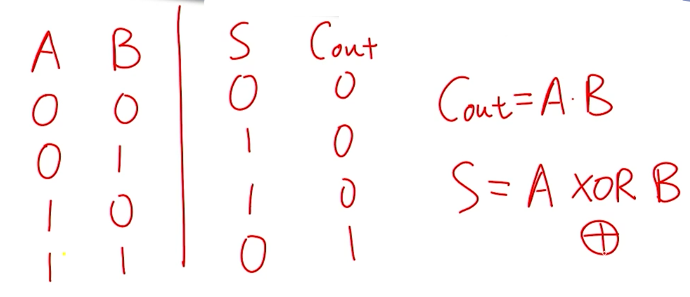 A B S Cout
0 0 0 0
0 1 1 0
1 0 1 0
1 1 0 1
Cout=A·B
S=A XOR B
⊕